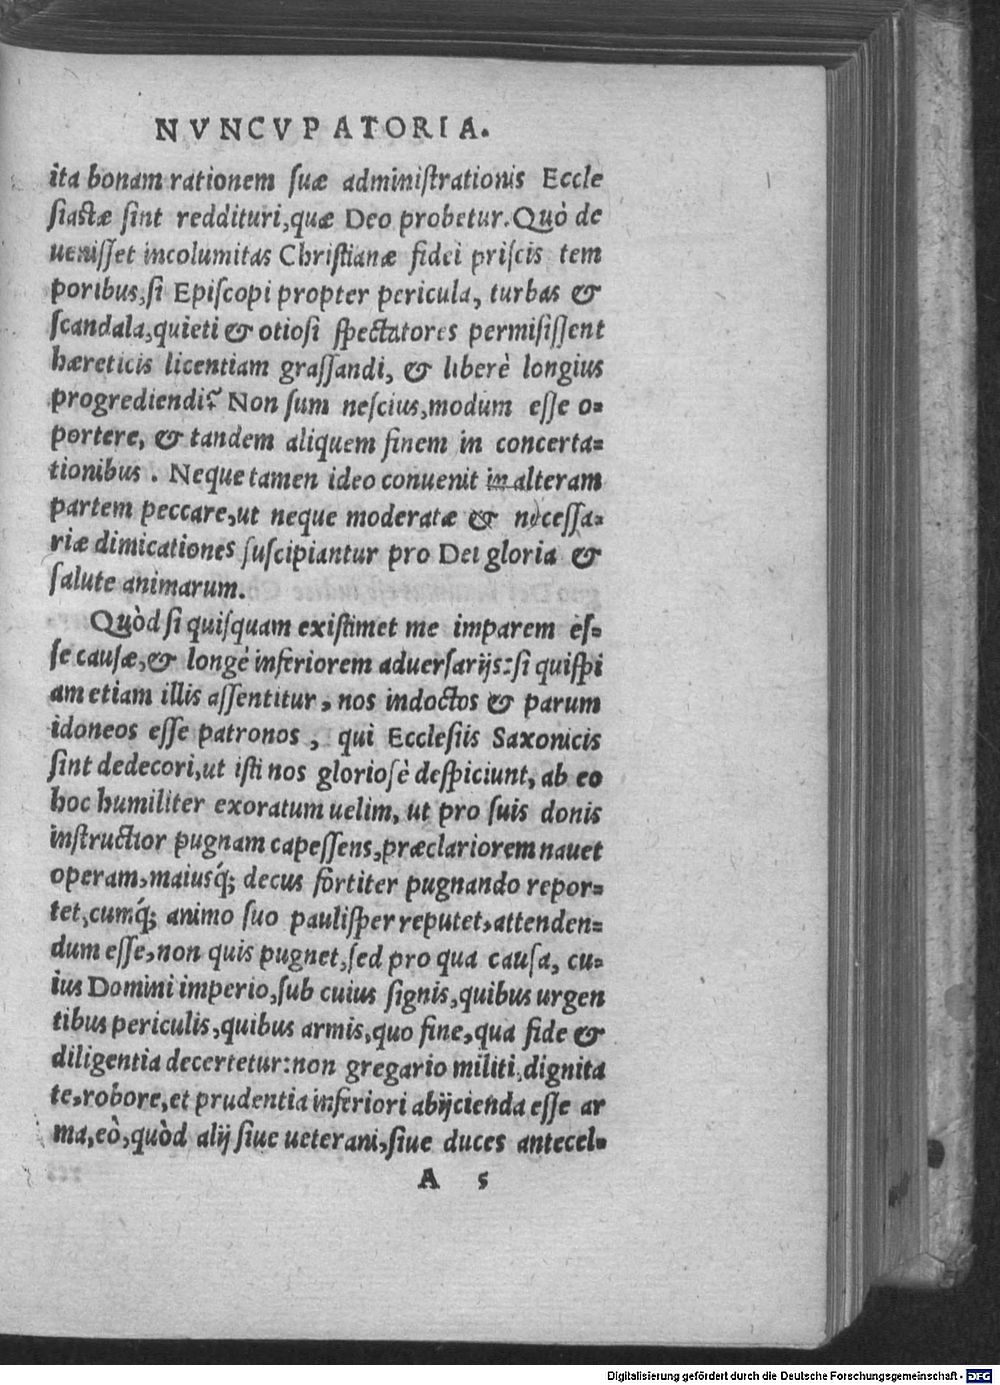 NVNCVPATORIA.
ita bonam rationem ſuæ adminiſtrationis Eccle
ſiaſtæ ſint reddituri, quæ Deo probetur. Quò de
ueniſſet incolumitas Chriſtianæ fidei priſcis tem
poribus, ſi Epiſcopi propter pericula, turbas &
ſcandala, quieti & otioſi ſpectatores permiſiſſent
hæreticis licentiam graſſandi, & liberè longius
progrediendi? Non ſum neſcius, modum eſſe o-
portere, & tandem aliquem finem in concerta-
tionibus. Neque tamen ideo conuenit in alteram
partem peccare, ut neque moderatæ & neceſſa-
riæ dimicationes ſuſcipiantur pro Dei gloria &
ſalute animarum.
Quòd ſi quiſquam exiſtimet me imparem eſ-
ſe cauſæ, & longè inferiorem aduerſarijs: ſi quiſpi
am etiam illis aſſentitur, nos indoctos & parum
idoneos eſſe patronos, qui Eccleſiis Saxonicis
ſint dedecori, ut iſti nos glorioſè deſpiciunt, ab eo
hoc humiliter exoratum uelim, ut pro ſuis donis
inſtructior pugnam capeſſens, præclariorem nauet
operam, maiusq́; decus fortiter pugnando repor-
tet, cumq́; animo ſuo pauliſper reputet, attenden-
dum eſſe, non quis pugnet, ſed pro qua cauſa, cu-
ius Domini imperio, ſub cuius ſignis, quibus urgen
tibus periculis, quibus armis, quo fine, qua fide &
diligentia decertetur: non gregario militi, dignita
te, robore, et prudentia inferiori abijcienda eſſe ar
ma, eò, quòd alij ſiue ueterani, ſiue duces antecel-
A 5
Digitalisierung gefördert durch die Deutsche Forschungsgemeinschaft - DFG